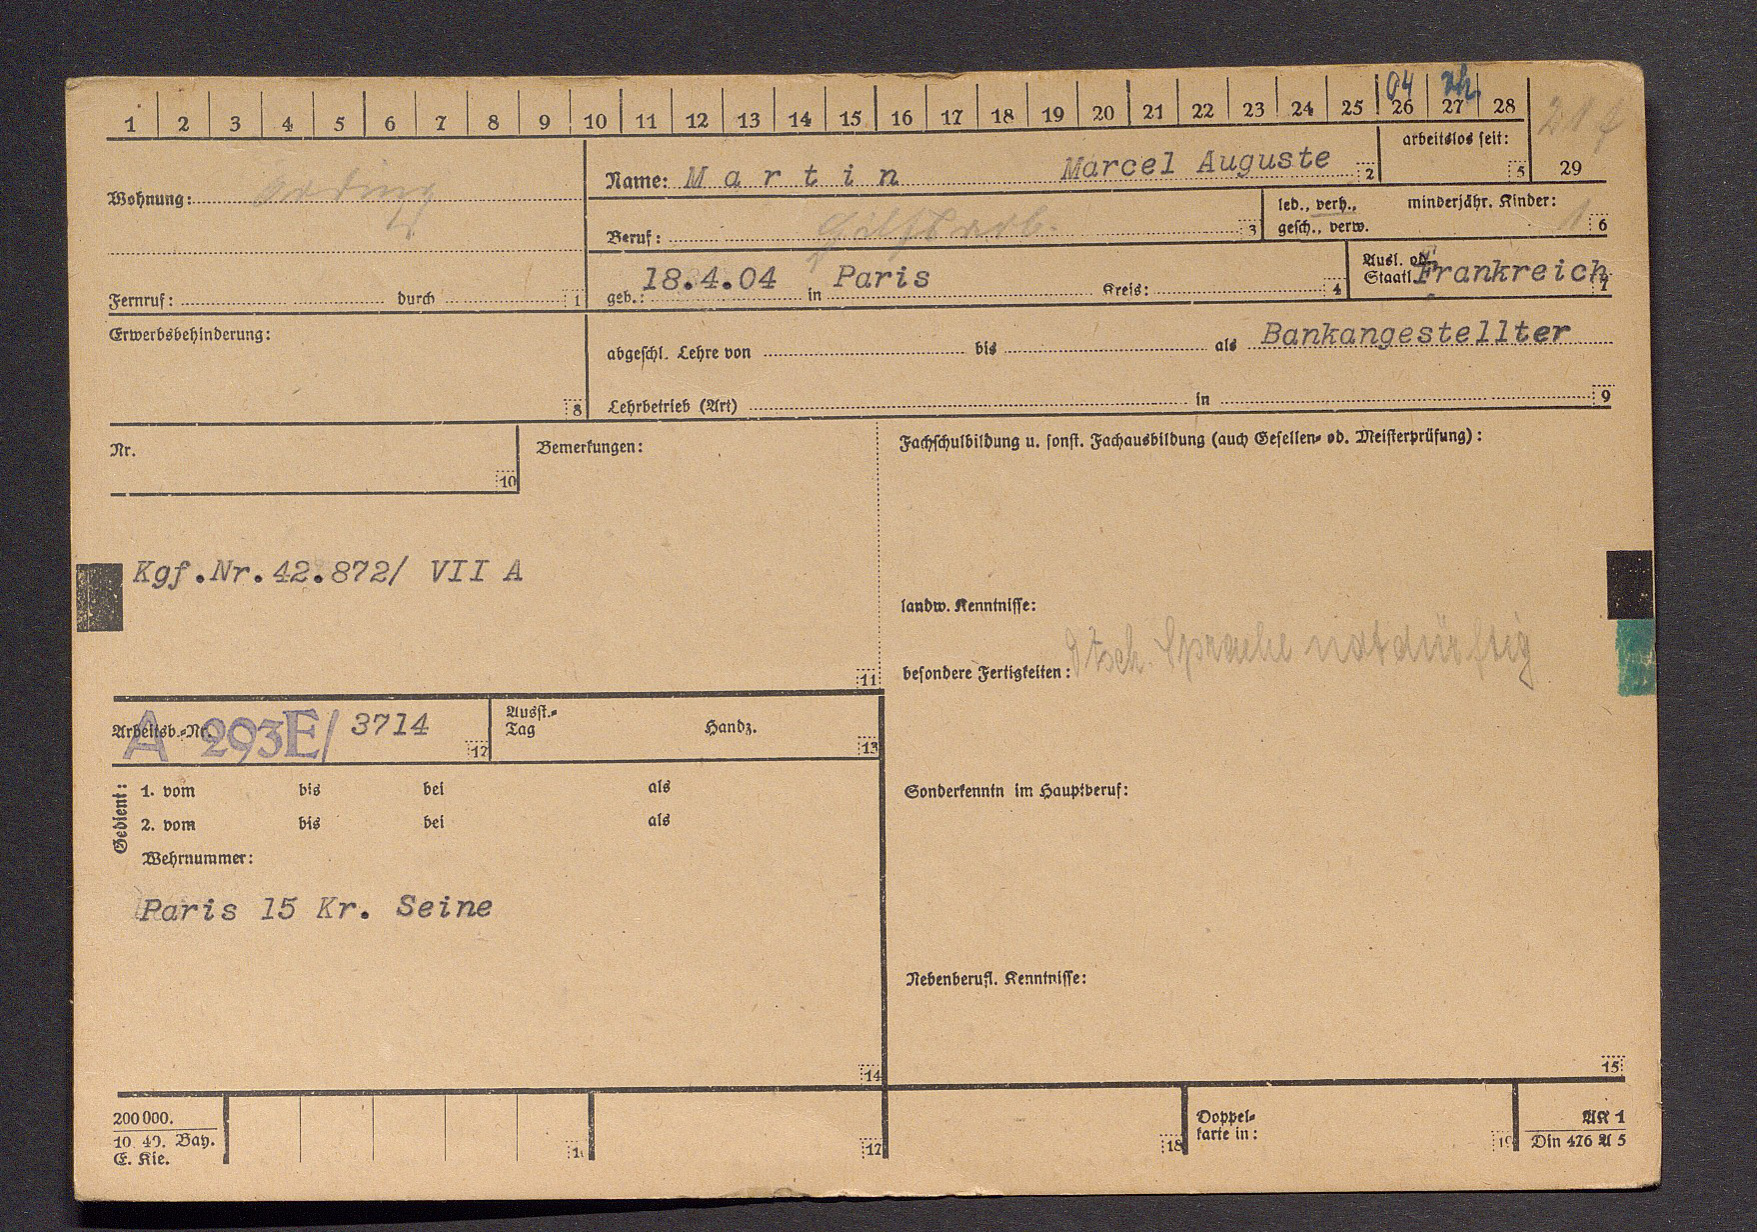 1 2 3 4 5 6 7 8 9 10 11 12 13 14 15 16 17 18 19 20 21 22 23 24 25 26 27 28
04 vh.
arbeitslos seit: 5
29
Wohnung:
Name: Martin Marcel Auguste 2
Beruf: Hilfsarb. 3
led., verh., gesch., verw.
minderjähr. Kinder: 1 6
Fernruf: durch 1
geb.: 18.4.04 in Paris Kreis: 4
Ausl. od. Staatl. Frankreich 7
Erwerbsbehinderung: 8
abgeschl. Lehre von bis als Bankangestellter
Lehrbetrieb (Art) in 9
Nr. 10
Bemerkungen:
Kgf.Nr.42.872/ VII A
11
Fachschulbildung u. sonst. Fachausbildung (auch Gesellen- od. Meisterprüfung):
landw. Kenntnisse:
besondere Fertigkeiten: Dtsch. Sprache notdürftig
Arbeitsb.-Nr. A 293E/ 3714 12
Ausst.-Tag Handz. 13
Gedient:
1. vom bis bei als
2. vom bis bei als
Wehrnummer:
Paris 15 Kr. Seine
14
Sonderkenntn im Hauptberuf:
Nebenberufl. Kenntnisse:
15
200000.
10. 40. Bay.
E. Kie.
16
17
18
Doppel-
karte in: 19
AK 1
Din 476 A 5